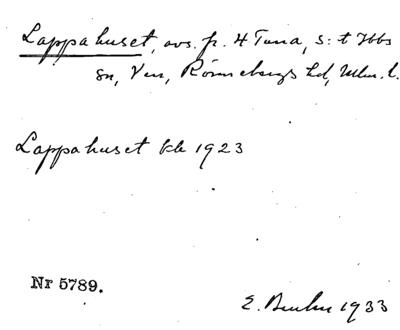 Lappahuset, avs. fr. 4 Tuna, S:t Ibbs
sn, Ven, Rönnebergs hd, Mlm. l.
Lappahuset kb 1923
Nr 5789.
E. 1933